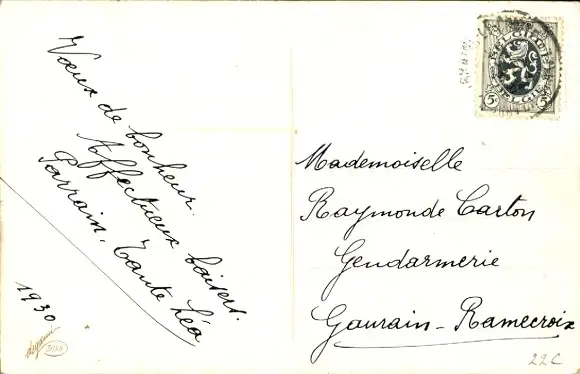 Vœux de bonheur.
Affectueux baisers.
Parrain. Tante Léa
1930
3146
BELGIQUE
BELGIE
5 5
Mademoiselle
Raymonde Carton
Gendarmerie
Gaurain - Ramecroix
22C